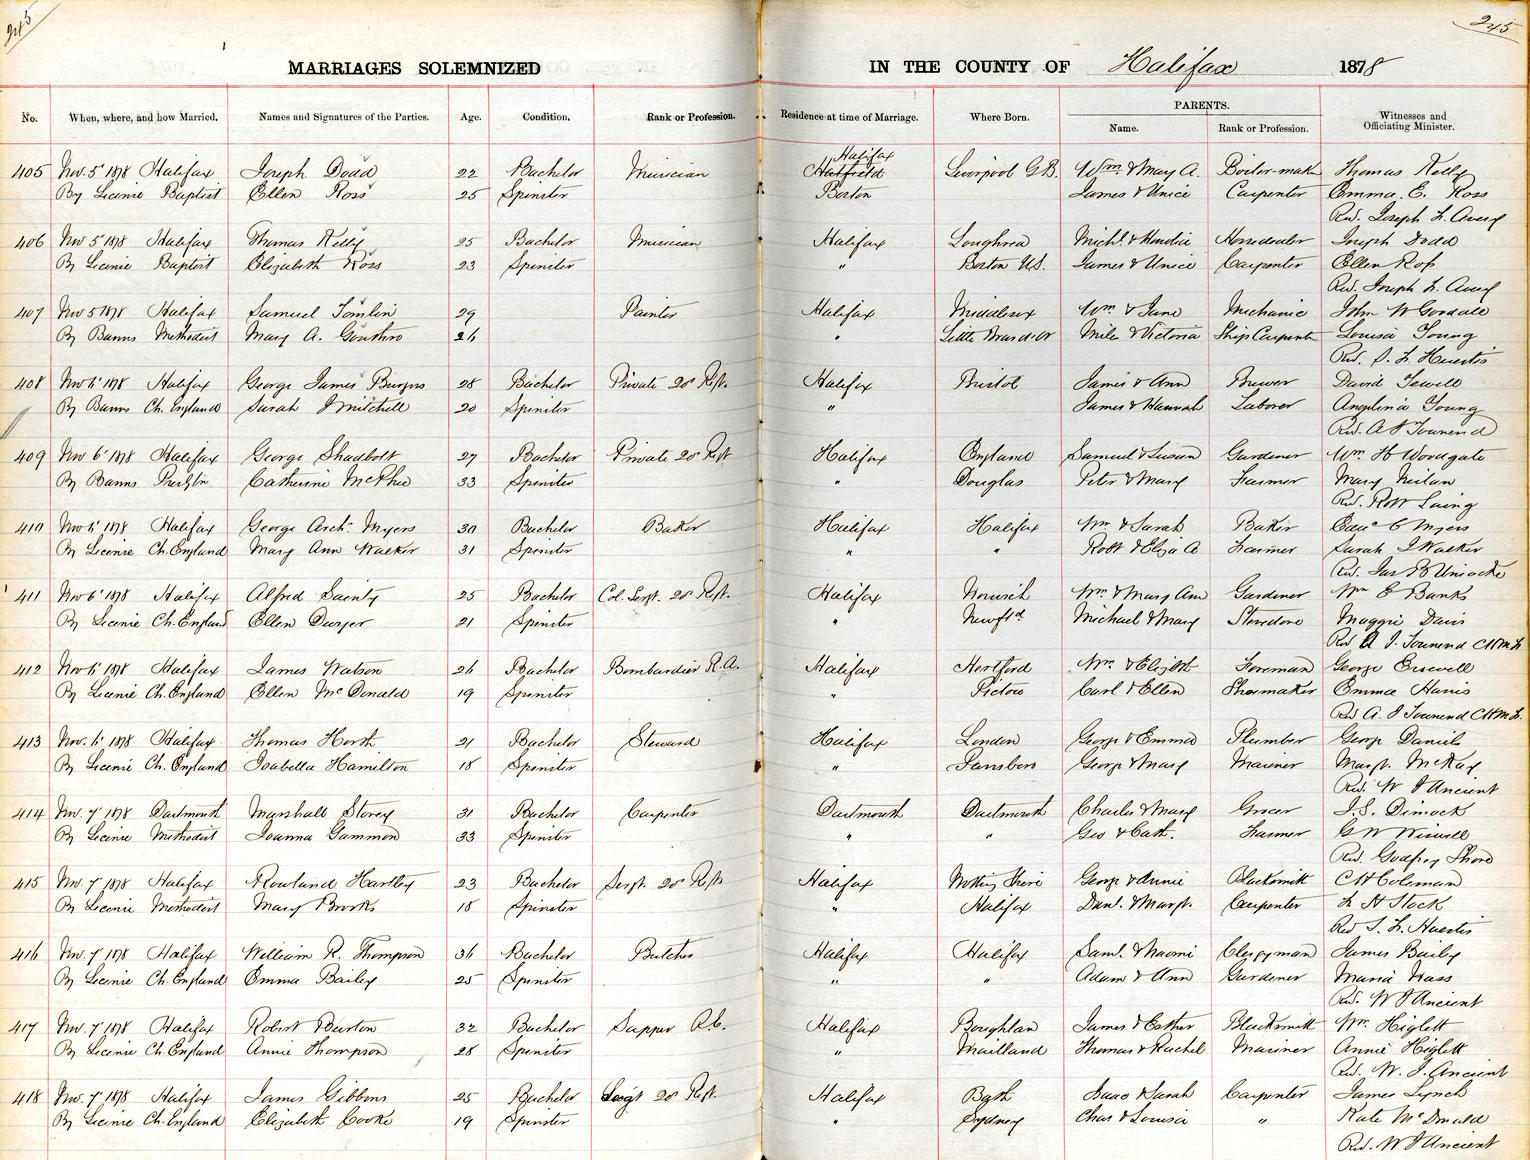 245
245
MARRIAGES SOLEMNIZED IN THE COUNTY OF Halifax 1878
No. When, where, and how Married. Names and Signatures of the Parties. Age. Condition. Rank or Profession. Residence at time of Marriage. Where Born. PARENTS. Name. Rank or Profession. Witnesses and Officiating Minister.
Halifax
405 Nov. 5' 1878 Halifax Joseph Dodd 22 Bachelor Musician Hatfield Liverpool G.B. Wm. & Mary A. Boiler-maker Thomas Kelly
By License Baptist Ellen Ross 25 Spinster Boston James & Unice Carpenter Emma E. Ross
Rev. Joseph F. Avery
406 Nov 5 1878 Halifax Thomas Kelly 25 Bachelor Musician Halifax Loughrea Michl. & Horsedealer Joseph Dodd
By License Baptist Elizabeth Ross 23 Spinster " Boston U.S. James & Unice Carpenter Ellen Ross
Rev. Joseph F. Avery
407 Nov 5 1878 Halifax Samuel Tomlin 29 Painter Halifax Middlesex Wm & Jane Mechanic John W Goodale
By Banns Methodist Mary A. Gouthro 26 " Little Bras d'or Miles & Victoria Ship Carpenter Louisa Young
Rev. S. F. Huestis
408 Nov 6' 1878 Halifax George James Burgess 28 Bachelor Private 20' Regt. Halifax Bristol James & Ann Brewer David Jewell
By Banns Ch. England Sarah J Mitchell 20 Spinster " James & Hannah Laborer Angelina Young
Rev. A J Townend
409 Nov 6' 1878 Halifax George Shadbolt 27 Bachelor Private 20' Regt Halifax England Samuel & Susan Gardener Wm. H Woodgate
By Banns Presbytn. Catherine McPhee 33 Spinster " Douglas Peter & Mary Farmer Mary
Rev. Robt Laing
410 Nov 6' 1878 Halifax George Arch. Myers 30 Bachelor Baker Halifax Halifax Wm & Sarah Baker C Myers
By License Ch. England Mary Ann Walker 31 Spinster " " Robt & Eliza A Farmer Sarah J Walker
Rev. Jas B Uniacke
411 Nov 6' 1878 Halifax Alfred Sainty 25 Bachelor Col. Sergt. 20' Regt. Halifax Norwich Wm & Mary Ann Gardener Wm C Banks
By License Ch. England Ellen Dwyer 21 Spinster " Newfld Michael & Mary Stevedore Maggie Davis
Rev A J. Townend C H M F.
412 Nov 6' 1878 Halifax James Watson 26 Bachelor Bombardier R.A. Halifax Hertford Wm. & Elizbth Foreman George
By License Ch. England Ellen McDonald 19 Spinster " Pictou Carl & Ellen Shoemaker Emma Harris
Rev A. J Townend C H M F.
413 Nov. 6' 1878 Halifax Thomas Horth 21 Bachelor Steward Halifax London George & Emma Plumber George Daniels
By License Ch. England Isabella Hamilton 18 Spinster " Parrsboro George & Mary Mariner Margt. McKay
Rev. W J Ancient
414 Nov. 7' 1878 Dartmouth Marshall Storey 31 Bachelor Carpenter Dartmouth Dartmouth Charles & Mary Grocer J.S. Dimock
By License Methodist Joanna Gammon 33 Spinster " " Geo & Cath. Farmer G W Wiswell
Rev. Godfrey Shore
415 Nov. 7' 1878 Halifax Rowland Hartley 23 Bachelor Sergt. 20' Regt. Halifax Notting Shire George & Annie Blacksmith C H Coleman
By License Methodist Mary Brooks 18 Spinster " Halifax Danl. & Margt. Carpenter F H Stock
Rev S. F. Huestis
416 Nov. 7' 1878 Halifax William R. Thompson 36 Bachelor Butcher Halifax Halifax Saml. & Naomi Clergyman James Baily
By License Ch. England Emma Bailey 25 Spinster " " Adam & Ann Gardener Maria
Rev. W J Ancient
417 Nov. 7' 1878 Halifax Robert Burton 32 Bachelor Sapper R.E. Halifax Boughton James & Esther Blacksmith Wm. Higlett
By License Ch. England Annie Thompson 28 Spinster " Maitland Thomas & Rachel Mariner Annie Higlett
Rev. W. J. Ancient
418 Nov. 7' 1878 Halifax James Gibbons 25 Bachelor Sergt 20' Regt. Halifax Bath Isaac & Sarah Carpenter James Lynch
By License Ch. England Elizabeth Cooke 19 Spinster " Sydney Chas & Louisa " Kate McDonald
Rev. W J Ancient